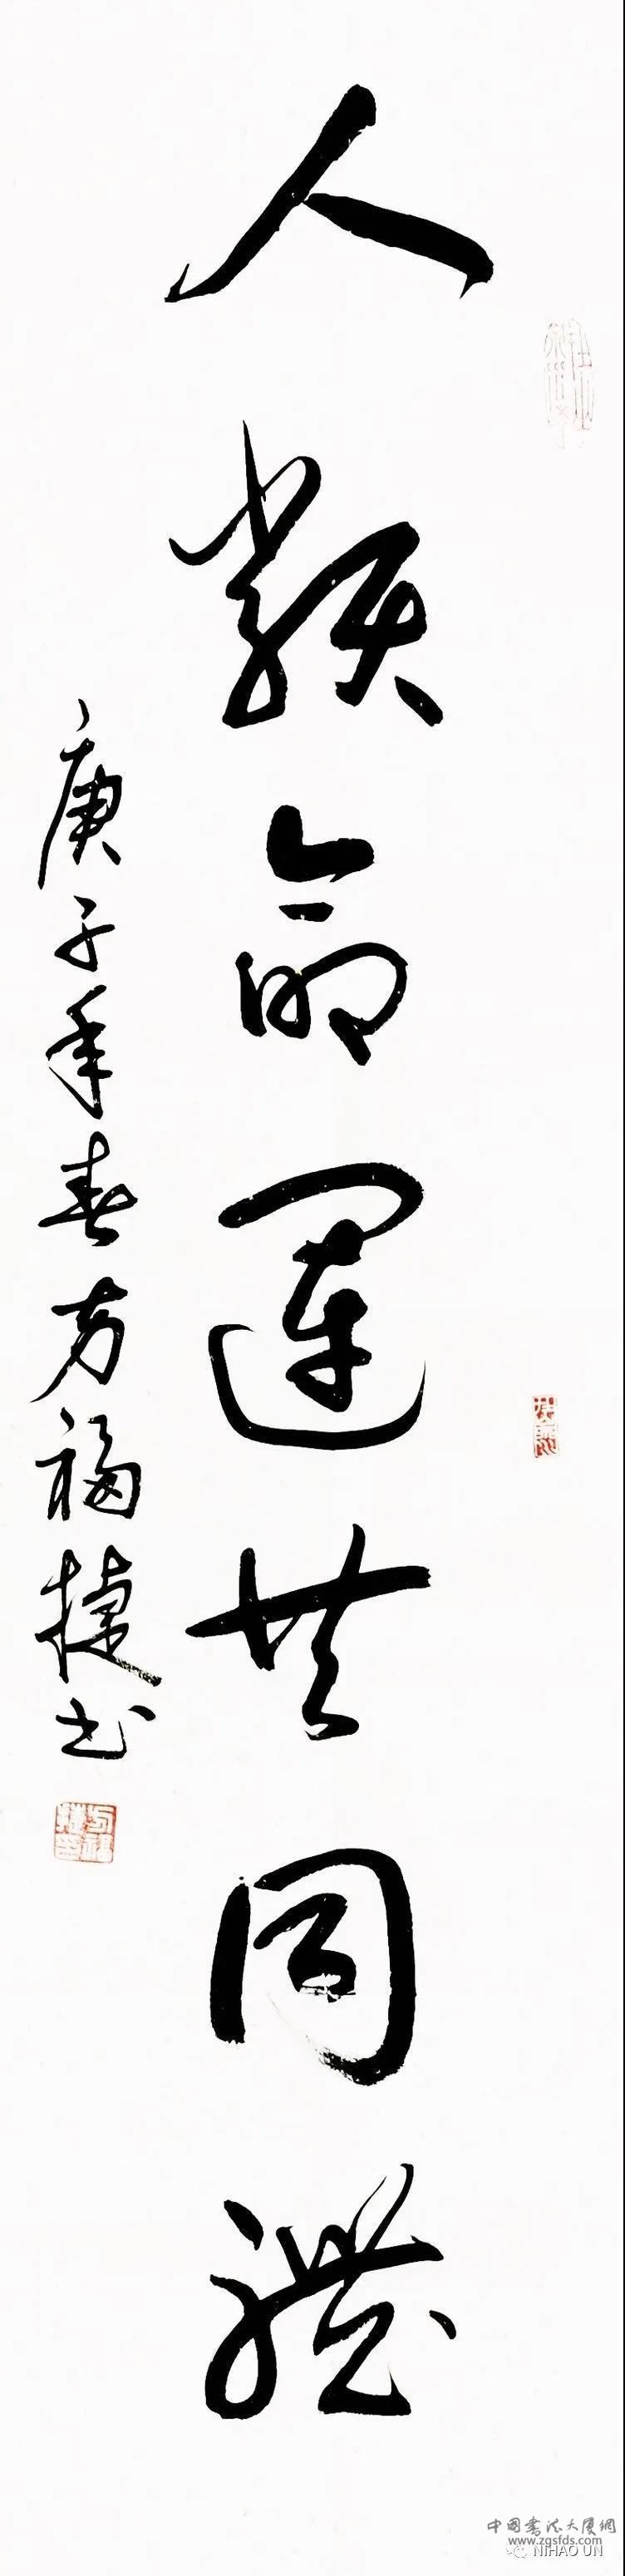 人類命運共同體
庚子年春方福捷書
方福捷印
中國書法大厦網
www.zgsfds.com
NIHAO UN